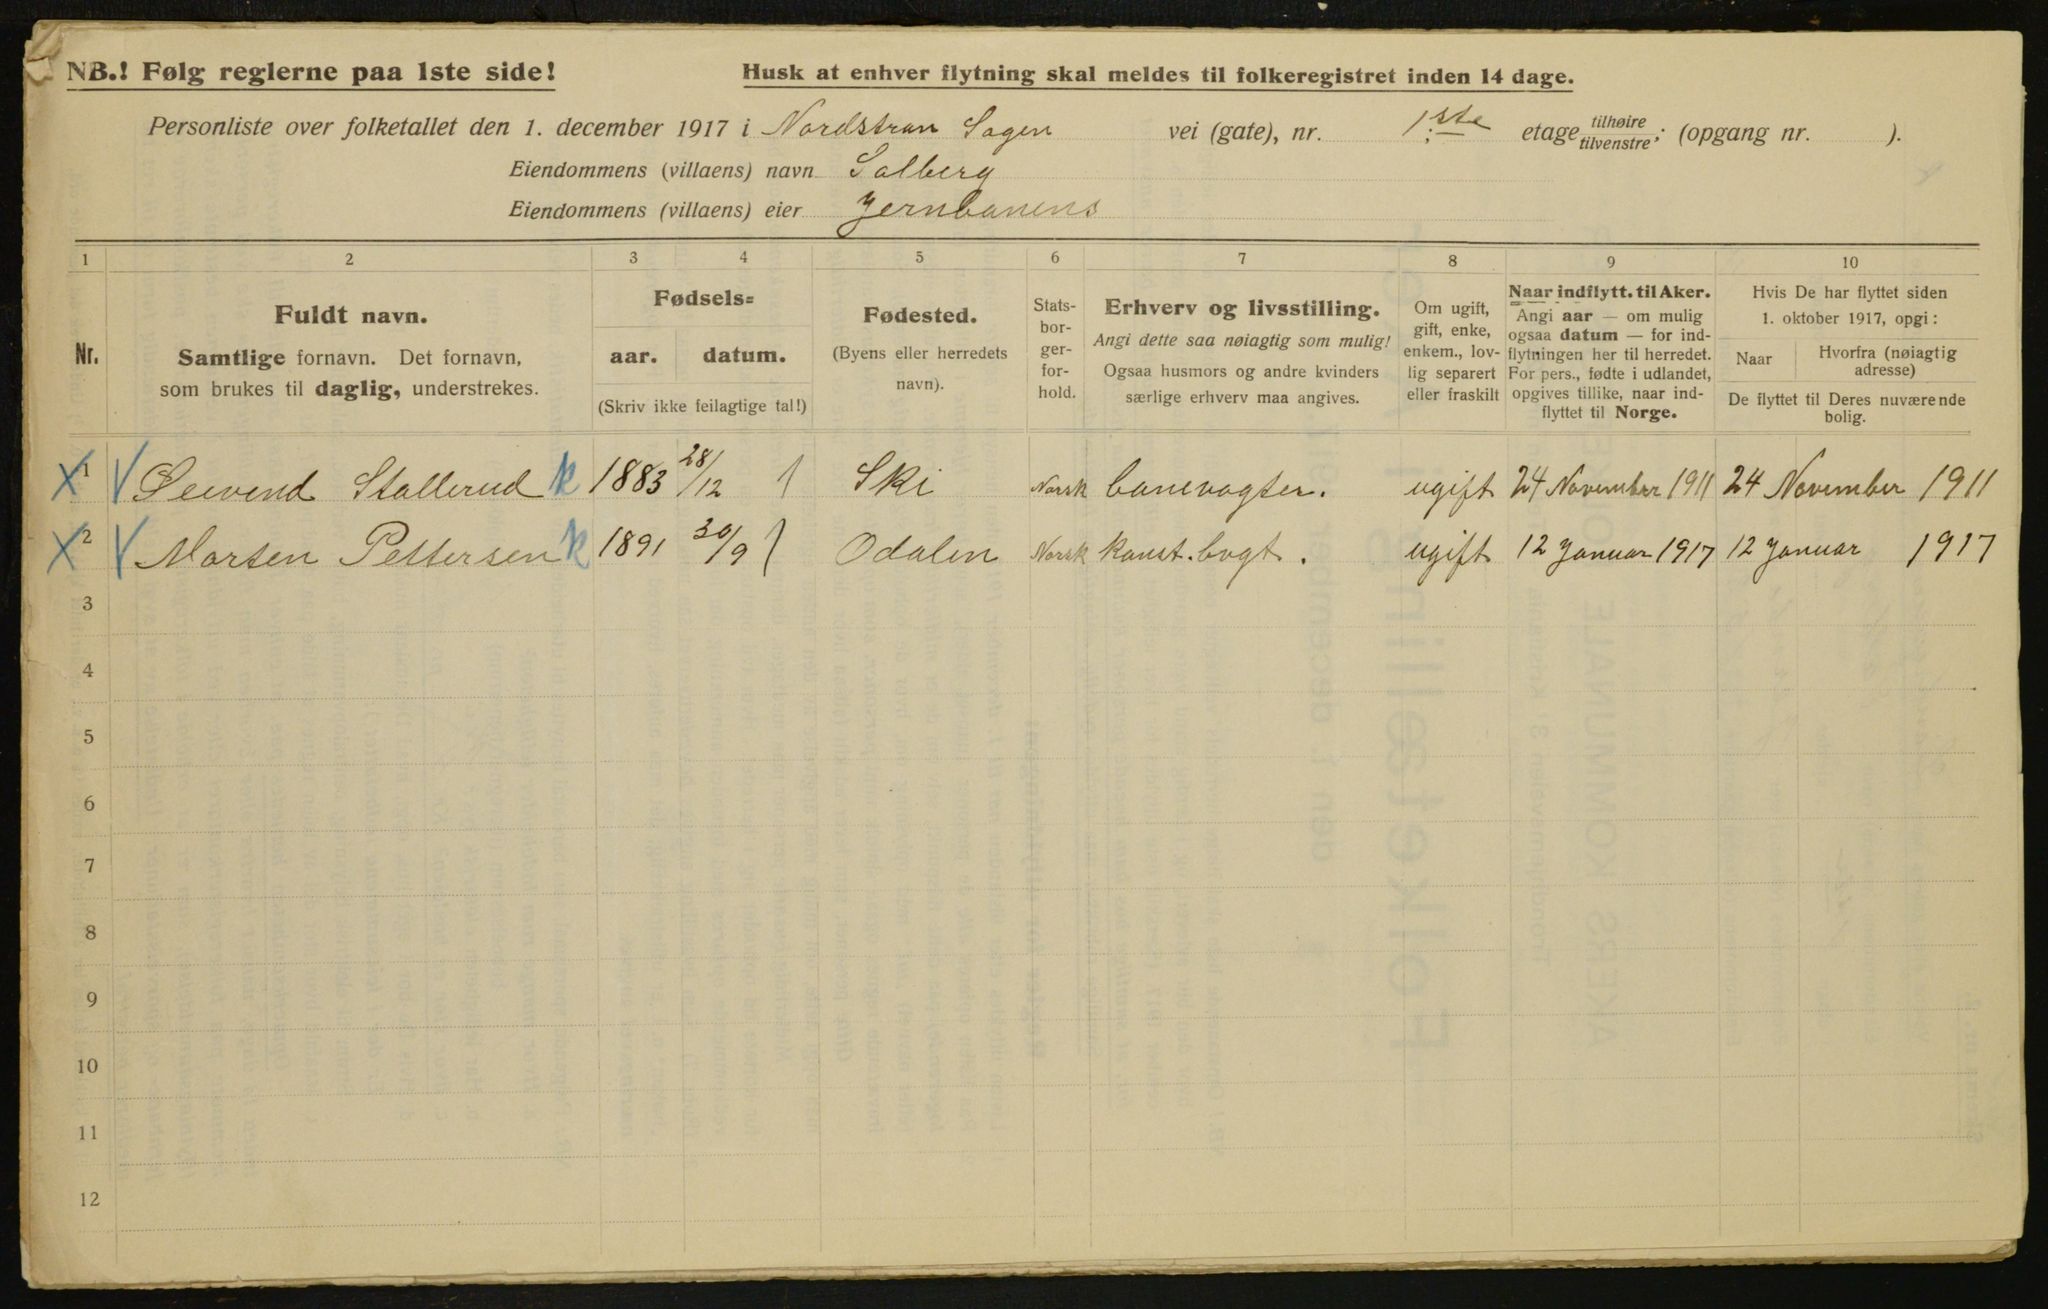 NB.! Følg reglerne paa 1ste side!
Husk at enhver flytning skal meldes til folkeregistret inden 14 dage.
Personliste over folketallet den 1. december 1917 i Nordstran Sagen vei (gate), nr. 1ste etage tilhøire/tilvenstre; (opgang nr. ).
Eiendommens (villaens) navn Solberg
Eiendommens (villaens) eier Jernbanens
1 2 3 4 5 6 7 8 9 10
Nr.
Fuldt navn.
Samtlige fornavn. Det fornavn,
som brukes til daglig, understrekes.
Fødsels=
aar. datum.
(Skriv ikke feilagtige tal!)
Fødested.
(Byens eller herredets
navn).
Stats-
bor-
ger-
for-
hold.
Erhverv og livsstilling.
Angi dette saa nøiagtig som mulig!
Ogsaa husmors og andre kvinders
særlige erhverv maa angives.
Om ugift,
gift, enke,
enkem., lov-
lig separert
eller fraskilt
Naar indflytt. til Aker.
Angi aar — om mulig
ogsaa datum — for ind-
flytningen her til herredet.
For pers., fødte i utlandet,
opgives tillike, naar ind-
flyttet til Norge.
Hvis De har flyttet siden
1. oktober 1917, opgi:
Naar
Hvorfra (nøiagtig
adresse)
De flyttet til Deres nuværende
bolig.
1 Stallerud k 1883 28/12 Ski Norsk banevogter. ugift 24 November 1911 24 November 1911
2 Morten Pettersen k 1891 30/9 Odalen Norsk ugift 12 Januar 1917 12 Januar 1917
3
4
5
6
7
8
9
10
11
12